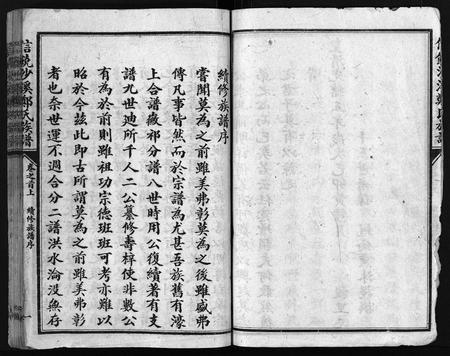 續修族譜序
嘗聞莫為之前雖美弗彰莫為之後雖盛弗
傳凡事皆然而於宗譜為尤甚吾族舊有濠
上合譜處祁分譜八世時用公復續著有支
譜九世廸所千人二公纂修壽梓使非數公
有為於前則雖祖功宗德班班可考亦雖以
昭於今茲此即古所謂莫為之前雖美弗彰
者也奈世運不遇合分二譜洪水淪没無存
信饒沙溪鄭氏族譜
卷之首上
續修族譜序
一